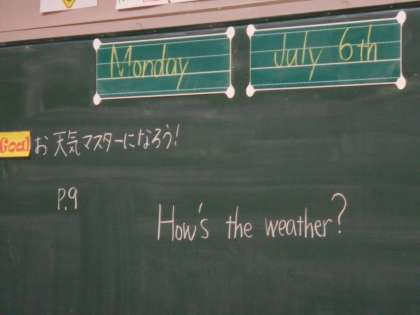 Monday
July 6th
Goal お天気マスターになろう!
P.9
How's the weather?